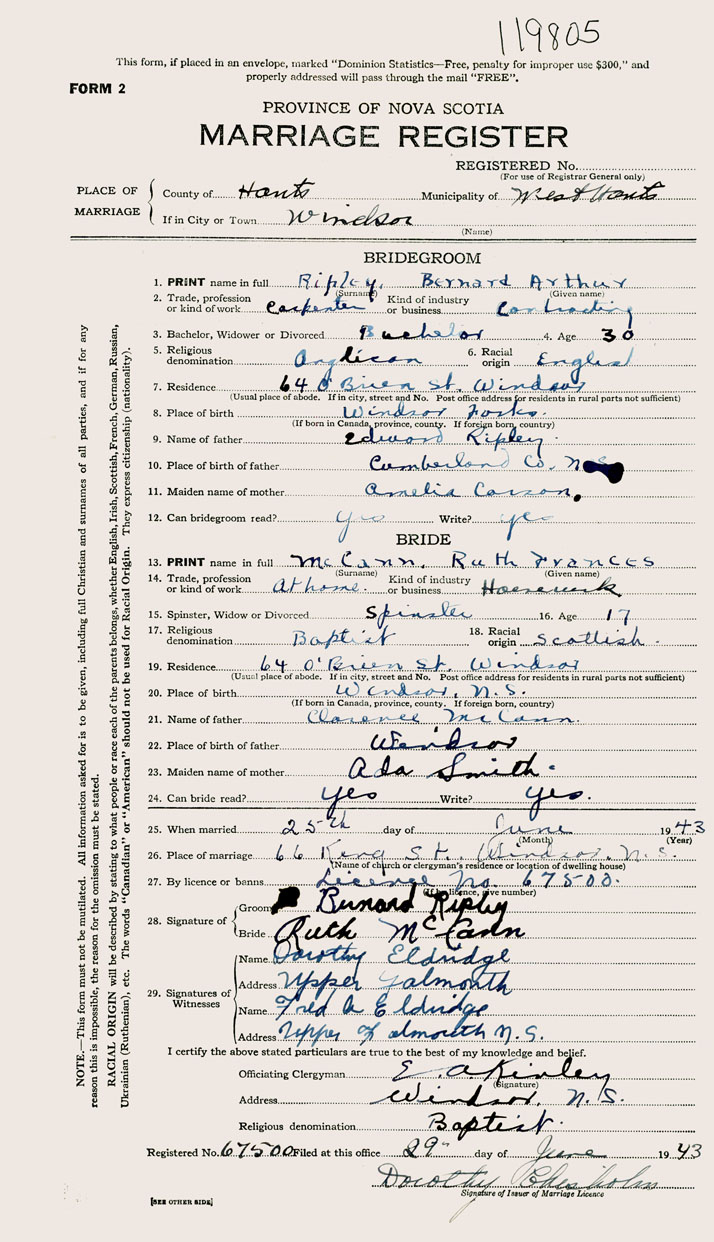 119805
This form, if placed in an envelope, marked "Dominion Statistics—Free, penalty for improper use $300," and
properly addressed will pass through the mail "FREE".
FORM 2
PROVINCE OF NOVA SCOTIA
MARRIAGE REGISTER
REGISTERED No.
(For use of Registrar General only)
PLACE OF MARRIAGE
County of Hants Municipality of West Hants
If in City or Town Windsor
(Name)
BRIDEGROOM
1. PRINT name in full Ripley, Bernard Arthur
(Surname) (Given name)
2. Trade, profession or kind of work Carpenter Kind of industry or business Contracting
3. Bachelor, Widower or Divorced Bachelor 4. Age 30
5. Religious denomination Anglican 6. Racial origin English
7. Residence 64 O'Brien St. Windsor
(Usual place of abode. If in city, street and No. Post office address for residents in rural parts not sufficient)
8. Place of birth Windsor Forks.
(If born in Canada, province, county. If foreign born, country)
9. Name of father Edward Ripley
10. Place of birth of father Cumberland Co. N.S.
11. Maiden name of mother Amelia Carson.
12. Can bridegroom read? yes Write? yes
BRIDE
13. PRINT name in full McCann, Ruth Frances
(Surname) (Given name)
14. Trade, profession or kind of work At home. Kind of industry or business Housework
15. Spinster, Widow or Divorced Spinster 16. Age 17
17. Religious denomination Baptist 18. Racial origin Scottish.
19. Residence 64 O'Brien St. Windsor
(Usual place of abode. If in city, street and No. Post office address for residents in rural parts not sufficient)
20. Place of birth Windsor, N.S.
(If born in Canada, province, county. If foreign born, country)
21. Name of father Clarence McCann.
22. Place of birth of father Windsor
23. Maiden name of mother Ada Smith.
24. Can bride read? yes Write? yes.
25. When married 25th day of June 1943
(Month) (Year)
26. Place of marriage 66 King St. Windsor, N.S.
(Name of church or clergyman's residence or location of dwelling house)
27. By licence or banns Licence No. 67500.
(If by licence, give number)
28. Signature of
Groom Bernard Ripley
Bride Ruth McCann
29. Signatures of Witnesses
Name Dorothy Eldridge
Address Upper Falmouth
Name Fred A Eldridge
Address Upper Falmouth N.S.
I certify the above stated particulars are true to the best of my knowledge and belief.
Officiating Clergyman E. A Kinley
(Signature)
Address Windsor, N.S.
Religious denomination Baptist.
Registered No. 67500 Filed at this office 29" day of June 1943
Dorothy Chisholm
Signature of Issuer of Marriage Licence
[SEE OTHER SIDE]
NOTE.—This form must not be mutilated. All information asked for is to be given, including full Christian and surnames of all parties, and if for any
reason this is impossible, the reason for the omission must be stated.
RACIAL ORIGIN will be described by stating to what people or race each of the parents belongs, whether English, Irish, Scottish, French, German, Russian,
Ukrainian (Ruthenian), etc. The words "Canadian" or "American" should not be used for Racial Origin. They express citizenship (nationality).